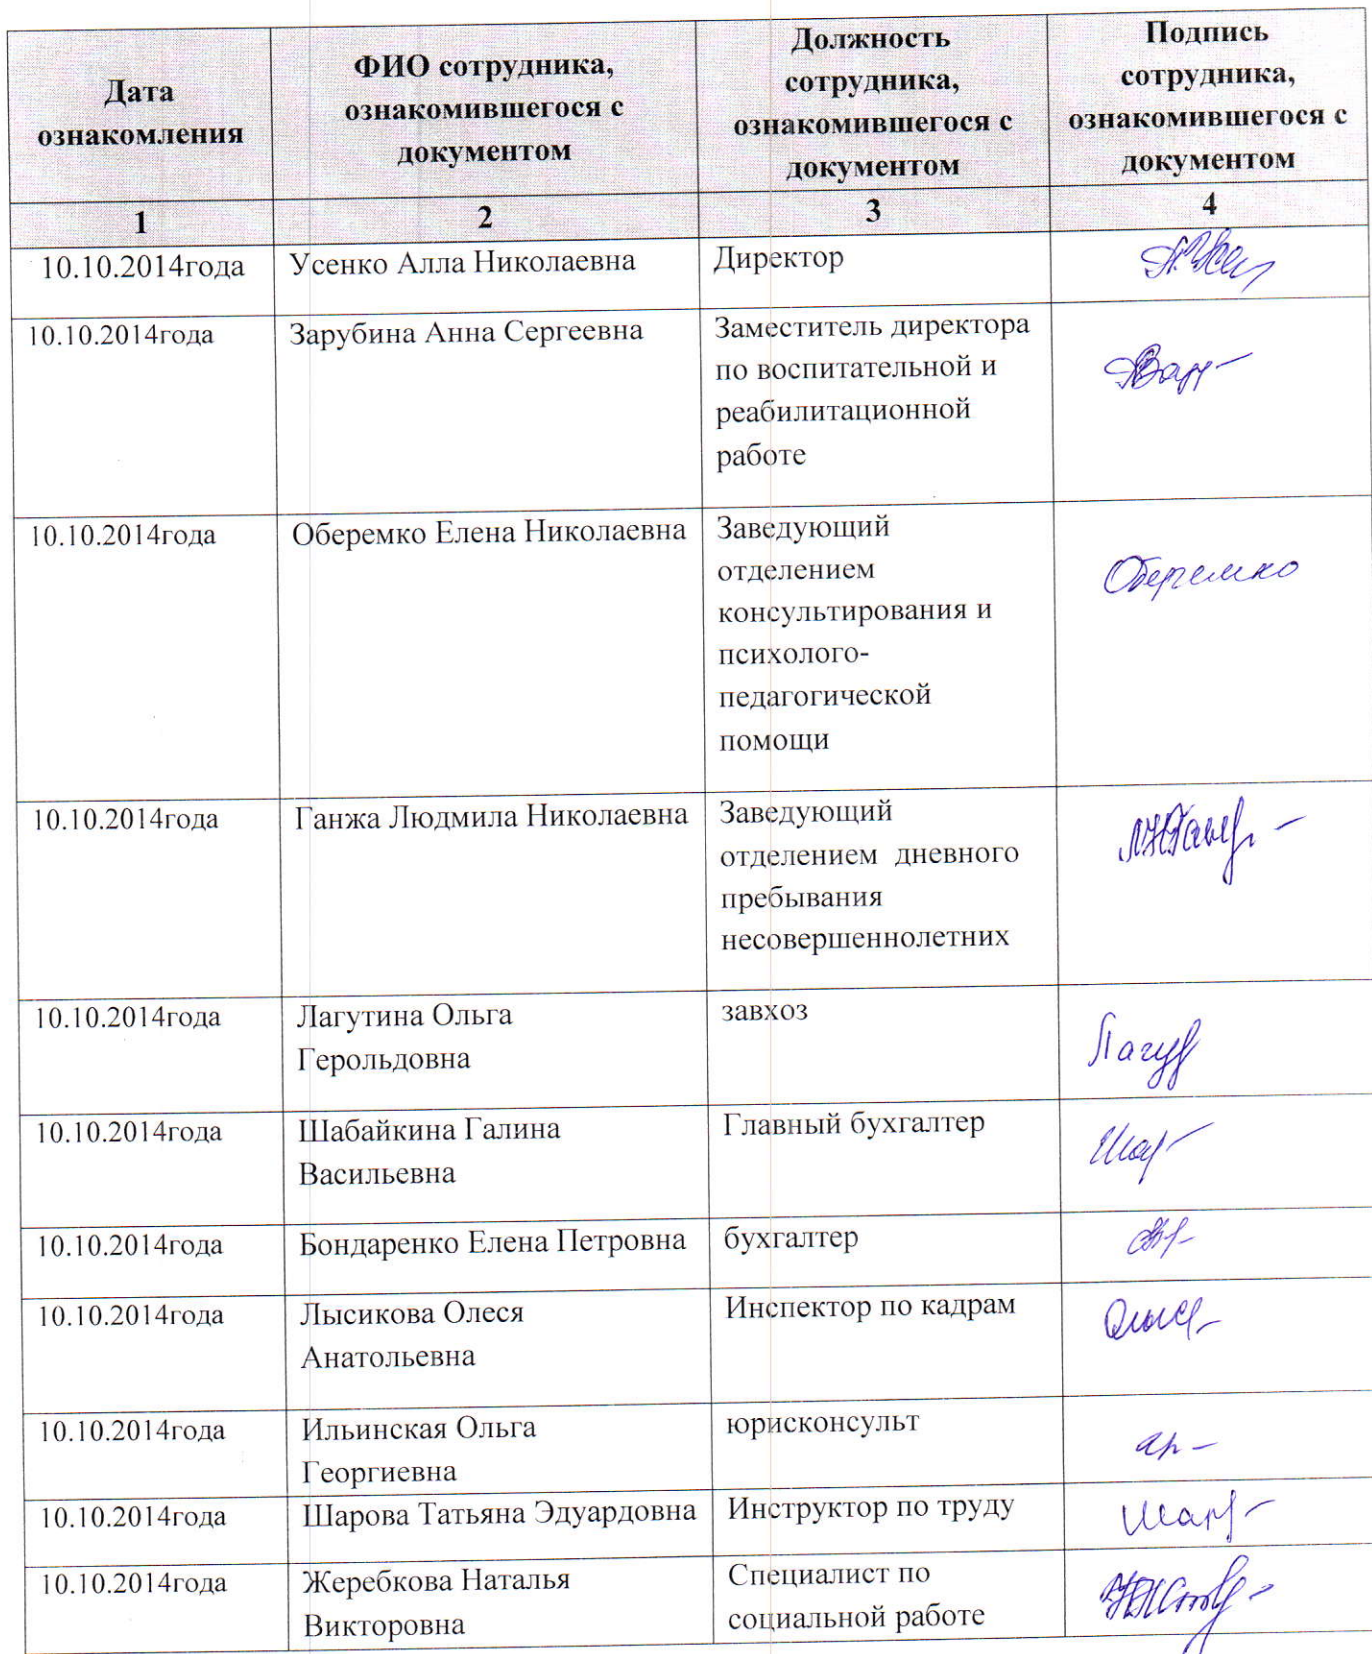 Дата
ознакомления
ФИО сотрудника,
ознакомившегося с
документом
Должность
сотрудника,
ознакомившегося с
документом
Подпись
сотрудника,
ознакомившегося с
документом
1
2
3
4
10.10.2014года
Усенко Алла Николаевна
Директор
10.10.2014года
Зарубина Анна Сергеевна
Заместитель директора
по воспитательной и
реабилитационной
работе
10.10.2014года
Оберемко Елена Николаевна
Заведующий
отделением
консультирования и
психолого-
педагогической
помощи
Оберемко
10.10.2014года
Ганжа Людмила Николаевна
Заведующий
отделением дневного
пребывания
несовершеннолетних
10.10.2014года
Лагутина Ольга
Герольдовна
завхоз
10.10.2014года
Шабайкина Галина
Васильевна
Главный бухгалтер
10.10.2014года
Бондаренко Елена Петровна
бухгалтер
10.10.2014года
Лысикова Олеся
Анатольевна
Инспектор по кадрам
10.10.2014года
Ильинская Ольга
Георгиевна
юрисконсульт
10.10.2014года
Шарова Татьяна Эдуардовна
Инструктор по труду
10.10.2014года
Жеребкова Наталья
Викторовна
Специалист по
социальной работе